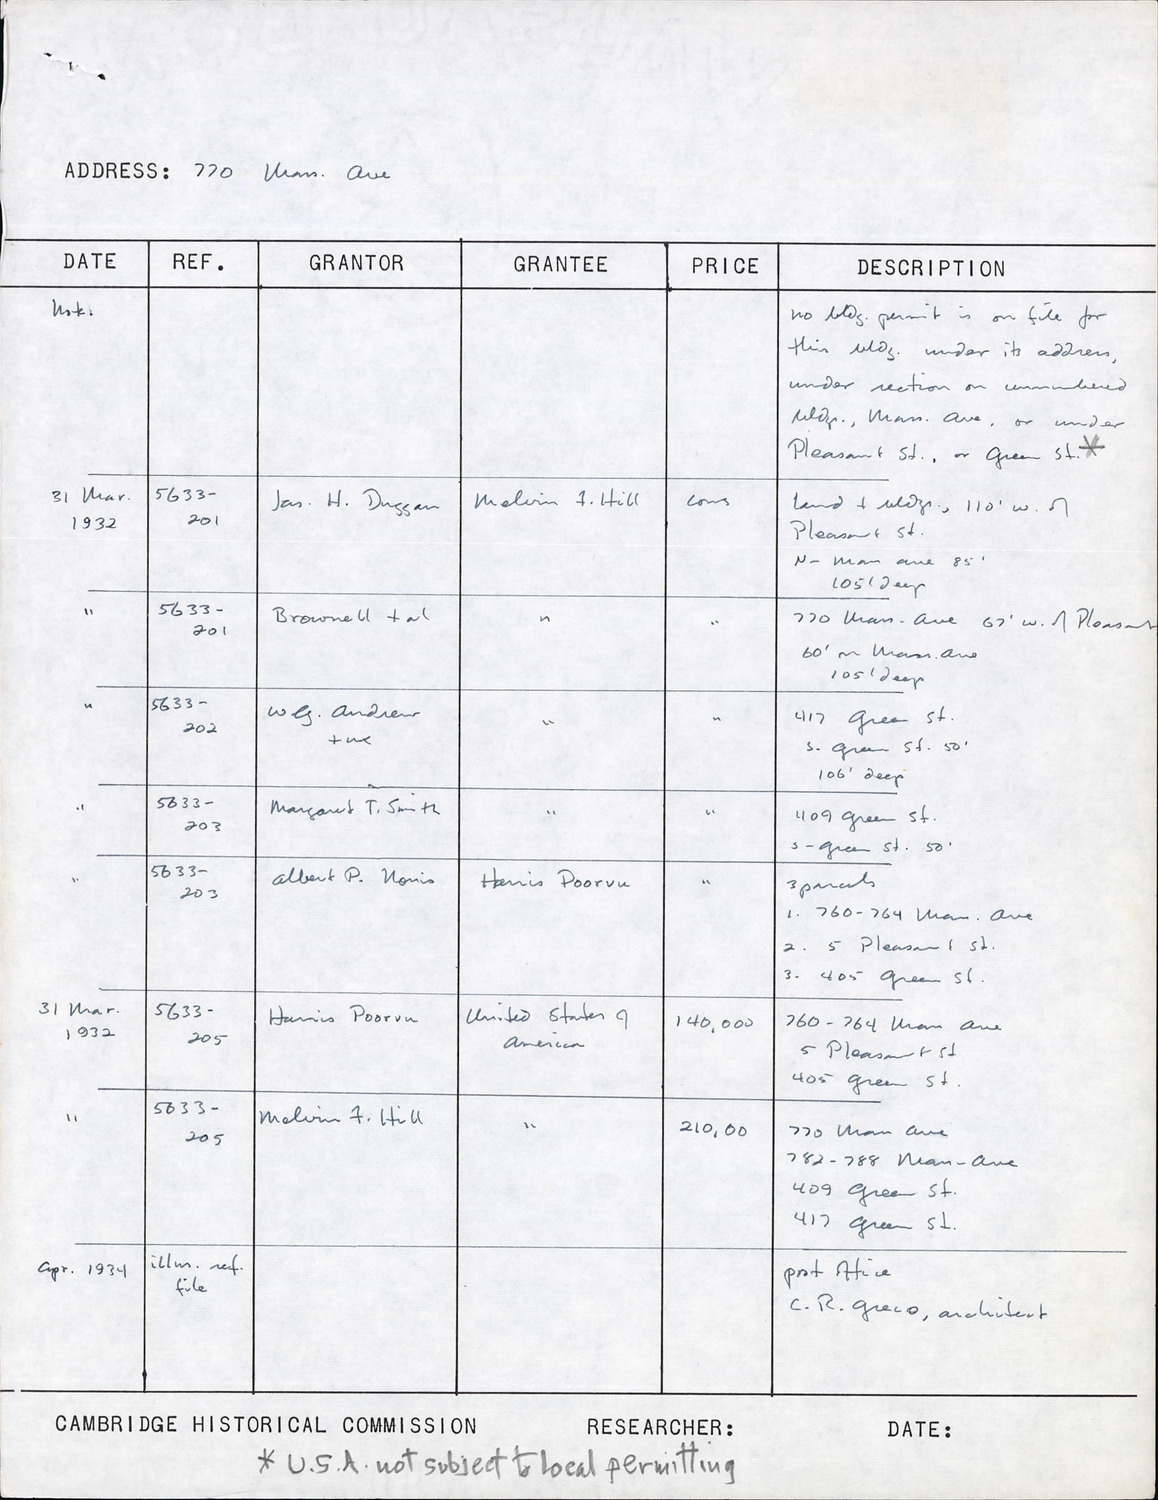 ADDRESS: 770 Mass. Ave
DATE REF. GRANTOR GRANTEE PRICE DESCRIPTION
Note: no bldg. permit is on file for
this bldg. under its address,
under section on unnumbered
bldgs., Mass. Ave, or under
Pleasant St., or Green St.*
31 Mar. 1932 5633-201 Jas. H. Duggan Melvin F. Hill cons land + bldgs., 110' w. of
Pleasant St.
N- Mass ave 85'
105' deep
" 5633-201 Brownell + al " " 770 Mass. Ave 67' w. of Pleasant
60' on Mass. Ave
105' deep
" 5633-202 W.G. Andrew + ux " " 417 Green St.
S- Green St. 50'
106' deep
" 5633-203 Margaret T. Smith " " 409 Green St.
S- Green St. 50'
" 5633-203 Albert P. Norris Harris Poorvu " 3 parcels
1. 760-764 Mass. Ave
2. 5 Pleasant St.
3. 405 Green St.
31 Mar. 1932 5633-205 Harris Poorvu United States of America 140,000 760-764 Mass Ave
5 Pleasant St
405 Green St.
" 5633-205 Melvin F. Hill " 210,00 770 Mass Ave
782-788 Mass-Ave
409 Green St.
417 Green St.
Apr. 1934 illus. ref. file post office
C. R. Greco, architect
CAMBRIDGE HISTORICAL COMMISSION RESEARCHER: DATE:
* U.S.A. not subject to local permitting